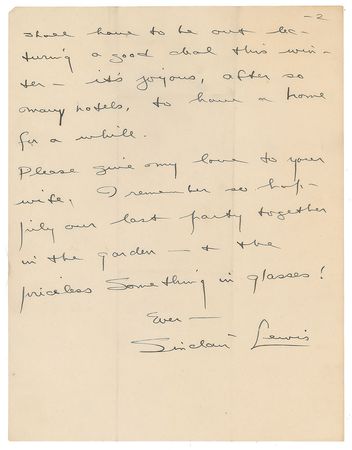 —2
shall have to be out lec-
turing a good deal this win-
ter — it's joyous, after so
many hotels, to have a home
for a while.
Please give my love to your
wife. I remember so hap-
pily our last party together
in the garden — & the
priceless Something in glasses!
Ever —
Sinclair Lewis